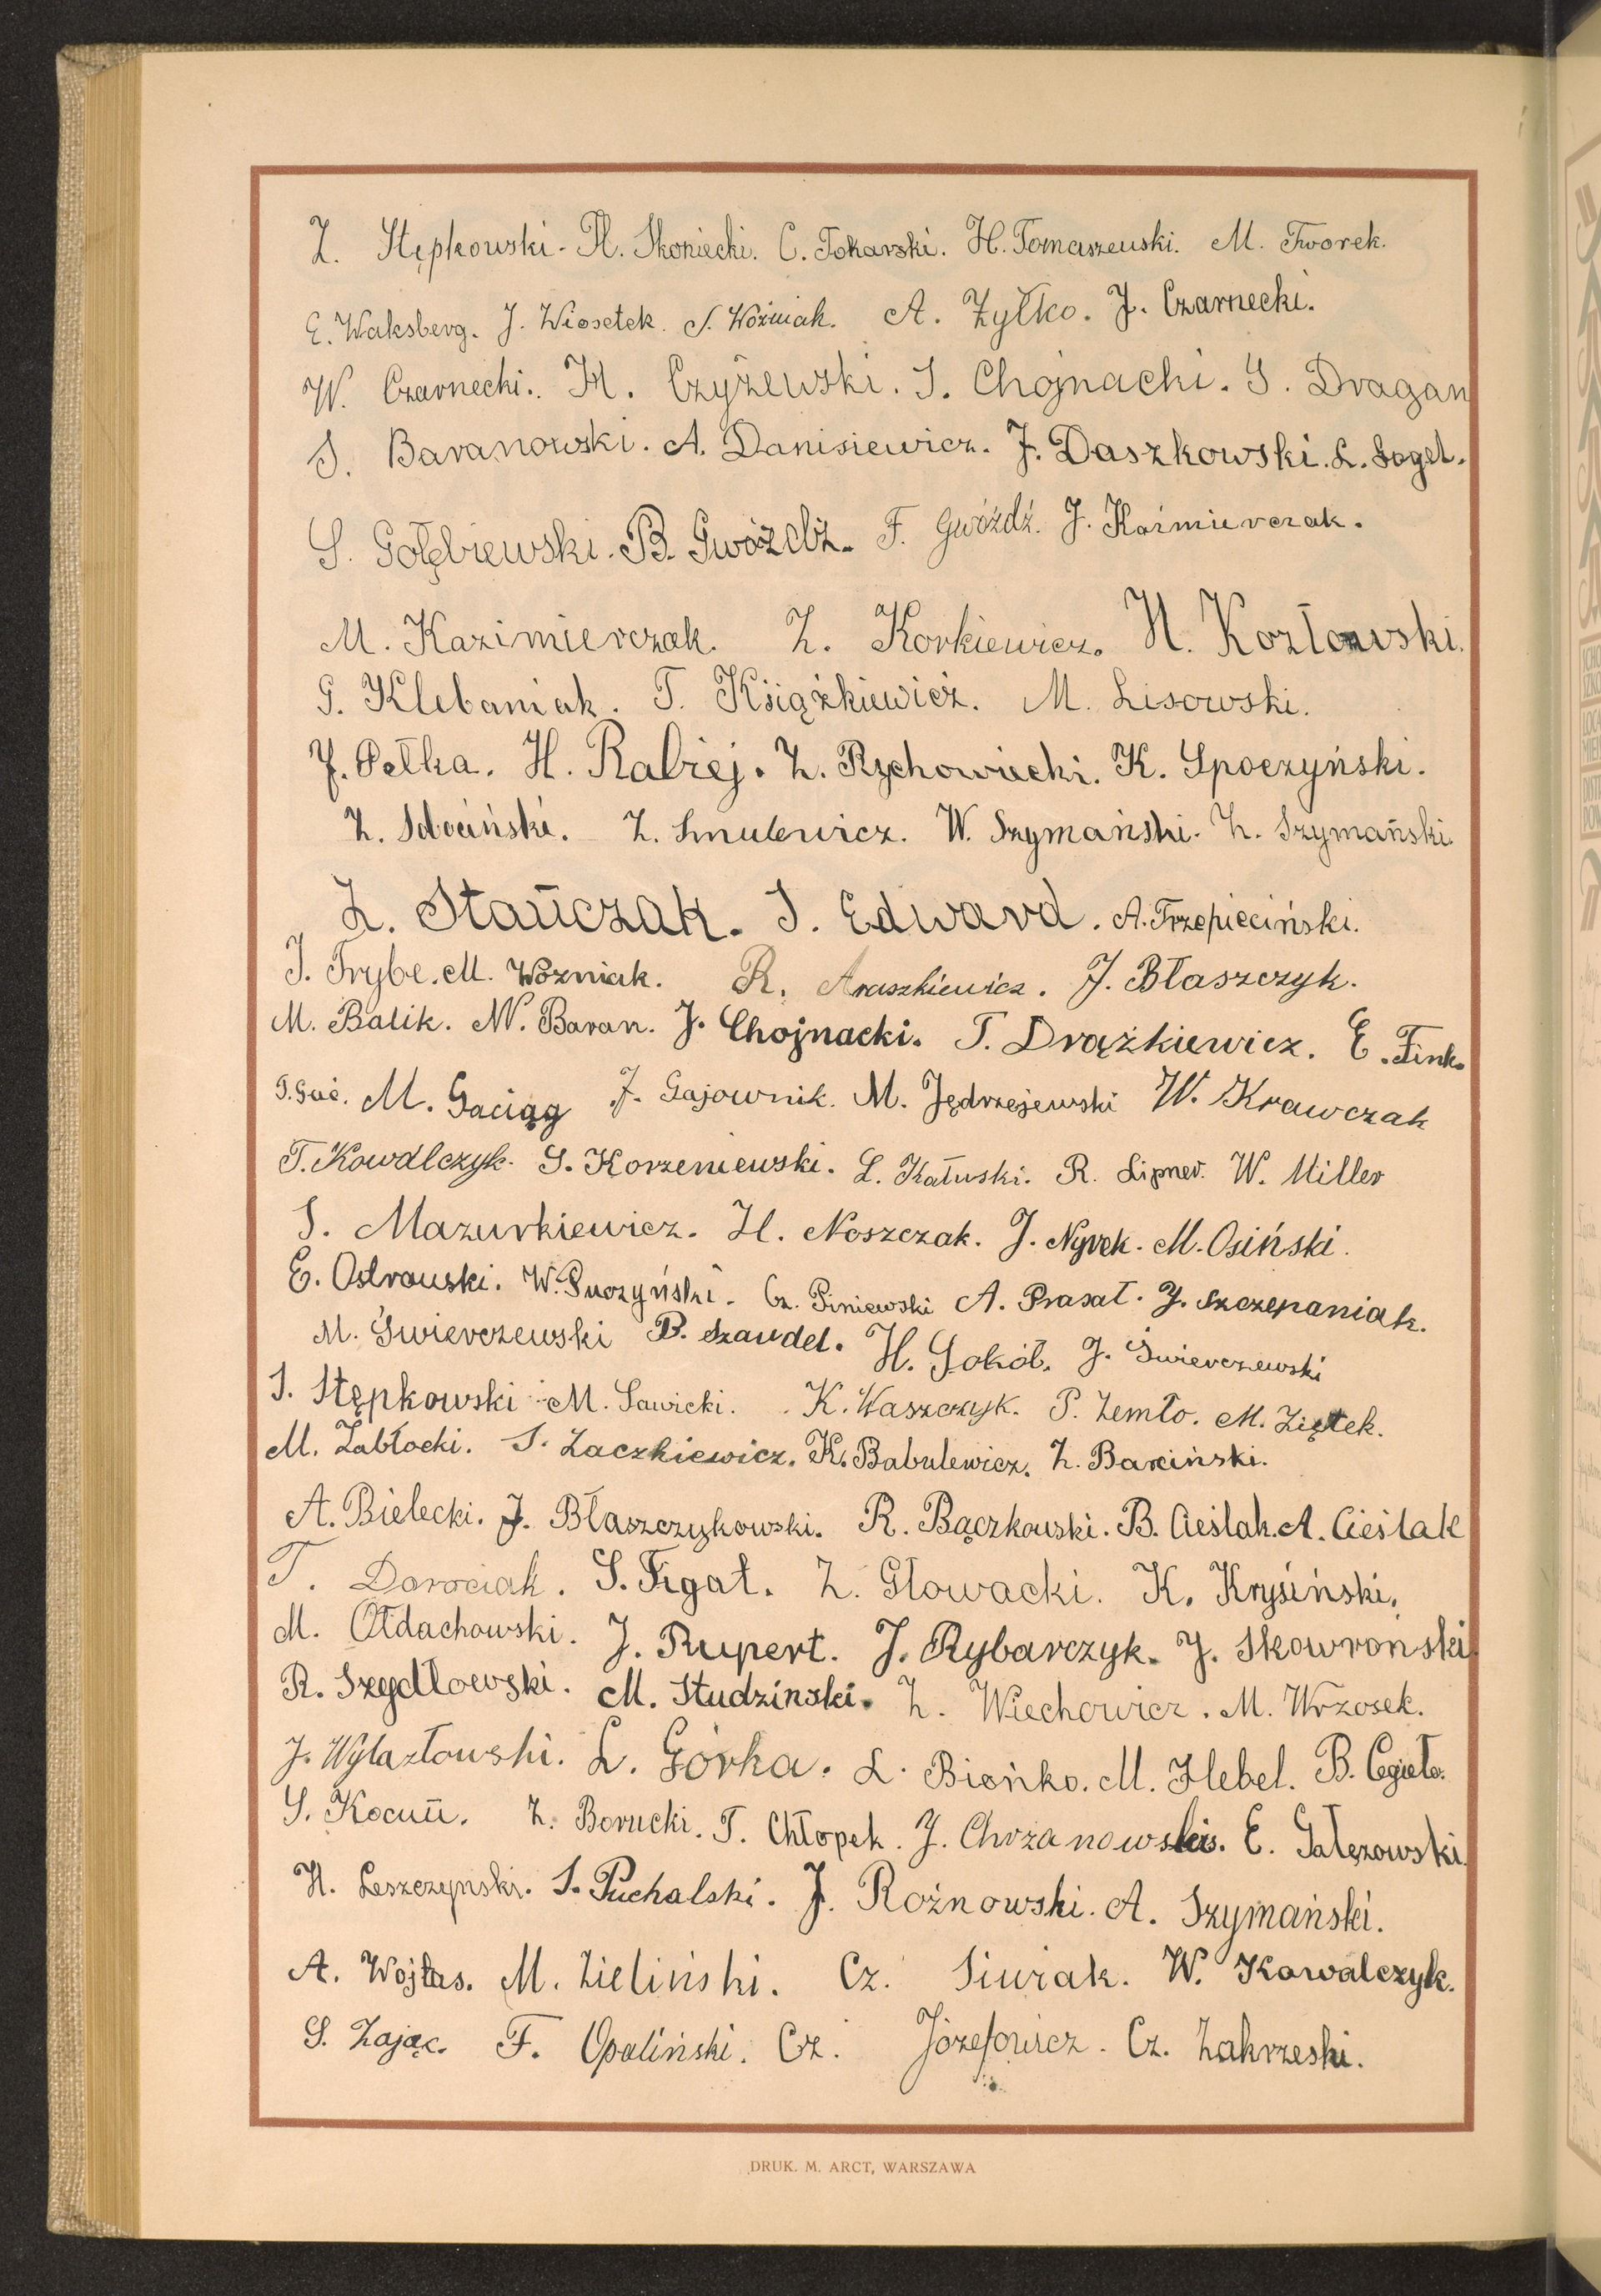 Z. Stępkowski. Pl. Skoniecki. C. Tokarski. H. Tomaszeuski. M. Tworek.
E. Waksberg. J. Wiosetek. S. Woźniak. A. Żyłko. J. Czarnecki.
W. Czarnecki. H. Czyżewski. S. Chojnacki. S. Dragan
S. Baranowski. A. Danisiewicz. J. Daszkowski. L. Fogel.
S. Gołębiewski. B. Gwóźdź. F. Gwóźdź. J. Kaźmierczak.
M. Kazimierczak. Z. Korkiewicz. H. Kozłowski.
G. Klebaniak. T. Książkiewicz. M. Lisowski.
J. Pełka. H. Rabiej. Z. Rychowiecki. K. Spoczyński.
Z. Sobociński. Z. Smulewicz. W. Szymański. Z. Szymański.
Z. Stańczak. S. Edward. A. Trzepieciński.
J. Trybe. M. Woźniak. R. Araszkiewicz. J. Błaszczyk.
M. Balik. W. Baran. J. Chojnacki. T. Drążkiewicz. E. Fink.
T. Gać. M. Gaciąg J. Gajownik. M. Jędrzejewski W. Krawczak
T. Kowalczyk. S. Korzeniewski. L. Kałuski. R. Lipner. W. Miller
S. Mazurkiewicz. H. Noszczak. J. Nyrek. M. Osiński.
E. Ostrouski. W. Puczyński. Cz. Piniewski A. Prasał. J. Szczepaniak.
M. Świerczewski B. Szaudel. H. Sokół. J. Świerczewski
S. Stępkowski M. Sawicki. K. Waszczyk. P. Zemło. M. Ziętek.
M. Zabłocki. S. Zaczkiewicz. K. Babulewicz. Z. Barciński.
A. Bielecki. J. Błaszczykowski. R. Bączkouski. B. Cieślak. A. Cieślak
T. Dorociak. S. Figat. Z. Głowacki. K. Krysiński.
M. Ołdachowski. J. Rupert. J. Rybarczyk. J. Skowroński.
R. Szydłowski. M. Studziński. Z. Wiechowicz. M. Wrzosek.
J. Wylazłowski. L. Górka. L. Bieńko. M. Hebel. B. Cegieło.
S. Kocuń. Z. Borucki. T. Chłopek. J. Chrzanowski. E. Gałęzowski.
H. Leszczynski. S. Puchalski. J. Rożnowski. A. Szymański.
A. Wojtas. M. Zieliński. Cz. Siurak. W. Kowalczyk.
S. Zając. F. Opaliński. Cz. Józefowicz. Cz. Zakrzeski.
DRUK. M. ARCT, WARSZAWA